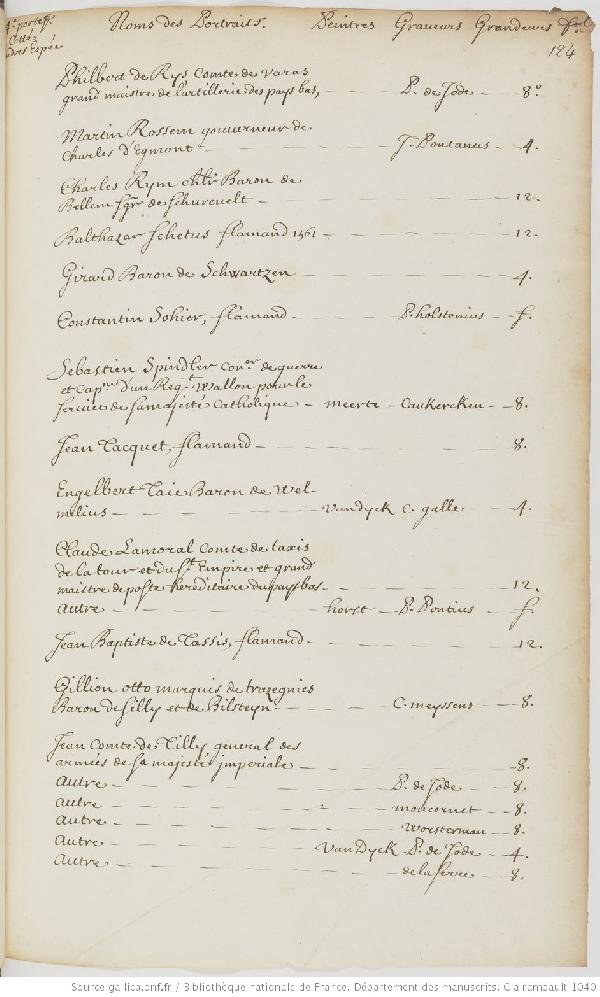 Noms des Portraits. Peintres Graveurs Grandeurs
184
Philbert de Rys Comte de Varas
grand maistre de l'artillerie des pays bas, P. de Jode 8º
Martin Rossem gouverneur de
Charles d'Egmont J. Pontanus 4.
Charles Rym Baron de
Bellem sgr de Schurevelt 12.
Balthazar Schetus flamand 1561 12.
Girard Baron de Schwartzen 4.
Constantin Sohier, flamand P. holstonius f.
Sebastien Spindler Coner de guerre
et Capne d'un Regt Wallon pour le
service de sa majesté Catholique meerte Caukercken 8.
Jean Tacquet, flamand 8.
Engelbert Taie Baron de Wel-
milius Vandyck C. galle 4.
Claude Lamoral Comte de taxis
de la tour et du St Empire et grand
maistre de poste hereditaire du pays bas 12.
Autre horst P. Pontius f.
Jean Baptiste de Tassis, flamand 12.
Gillion otto marquis de trazegnies
Baron de Silly et de Bilsteyn C. meyssens 8.
Jean Comte de Tilly general des
armées de sa majesté imperiale 8.
Autre P. de Jode 8.
Autre moncornet 8.
Autre Worsterman 8.
Autre VanDyck P. de Jode 4.
Autre de la serre 8.
Source gallica.bnf.fr / Bibliothèque nationale de France. Département des manuscrits. Clairambault 1040